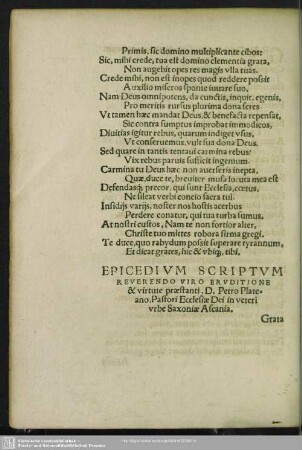 Primis, sic domino multiplicante cibos:
Sic, mihi crede, tua est domino clementia grata,
Non augebit opes res magis vlla tuas.
Crede mihi, non est inopes quod reddere possit
Auxilio miseros sponte iuuare suo,
Nam Deus omnipotens, da cunctis, inquit, egenis,
Pro meritis rursus plurima dona feres
Vt tamen hæc mandat Deus, & benefacta repensat,
Sic contra sumptus improbat immodicos,
Diuitias igitur rebus, quarum indiget vsus,
Vt conseruemus, vult sua dona Deus.
Sed quare in tantis tentaui carmina rebus?
Vix rebus paruis sufficit ingenium.
Carmina tu Deus hæc non auerseris inepta,
Quæ, duce te, breuiter musa locuta mea est
Defendasq; precor, qui sunt Ecclesia, cœtus,
Ne sileat verbi concio sacra tui.
Insidijs varijs, noster nos hostis acerbus
Perdere conatur, qui tua turba sumus,
At nostri custos, Nam te non fortior alter,
Christe tuo mittes robora firma gregi.
Te duce, quo rabydum possit superare tyrannum,
Et dicat grates, hic & vbiq, tibi.
EPICEDIVM SCRIPTVM
REVERENDO VIRO ERVDITIONE
& virtute præstanti, D. Petro Plate-
ano, Pastori Ecclesiæ Dei in veteri
vrbe Saxoniæ Ascania.
Grata